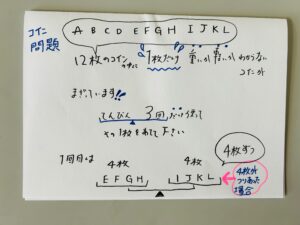 コイン問題
A B C D E F G H I J K L
12枚のコインの中に 1枚だけ 重いか軽いか わからない
コインが
まざっています!!
てんびん 3回だけ使って
その1枚をあてて下さい
1回目は 4枚 4枚 4枚ずつ
E F G H I J K L
4枚が
つりあった
場合